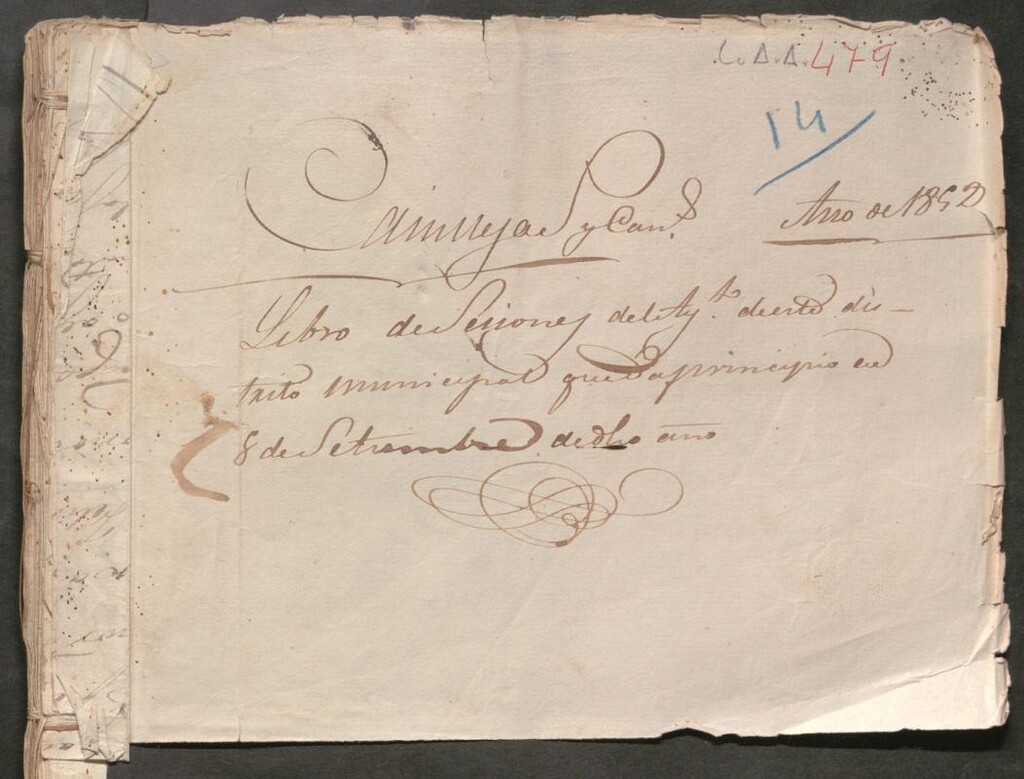 C.A.A. 479
14
Canillejas y Can.s Año de 1852
Libro de Sesiones del Ay.to de este dis-
trito municipal que da principio en
8 de Setiembre de dho año